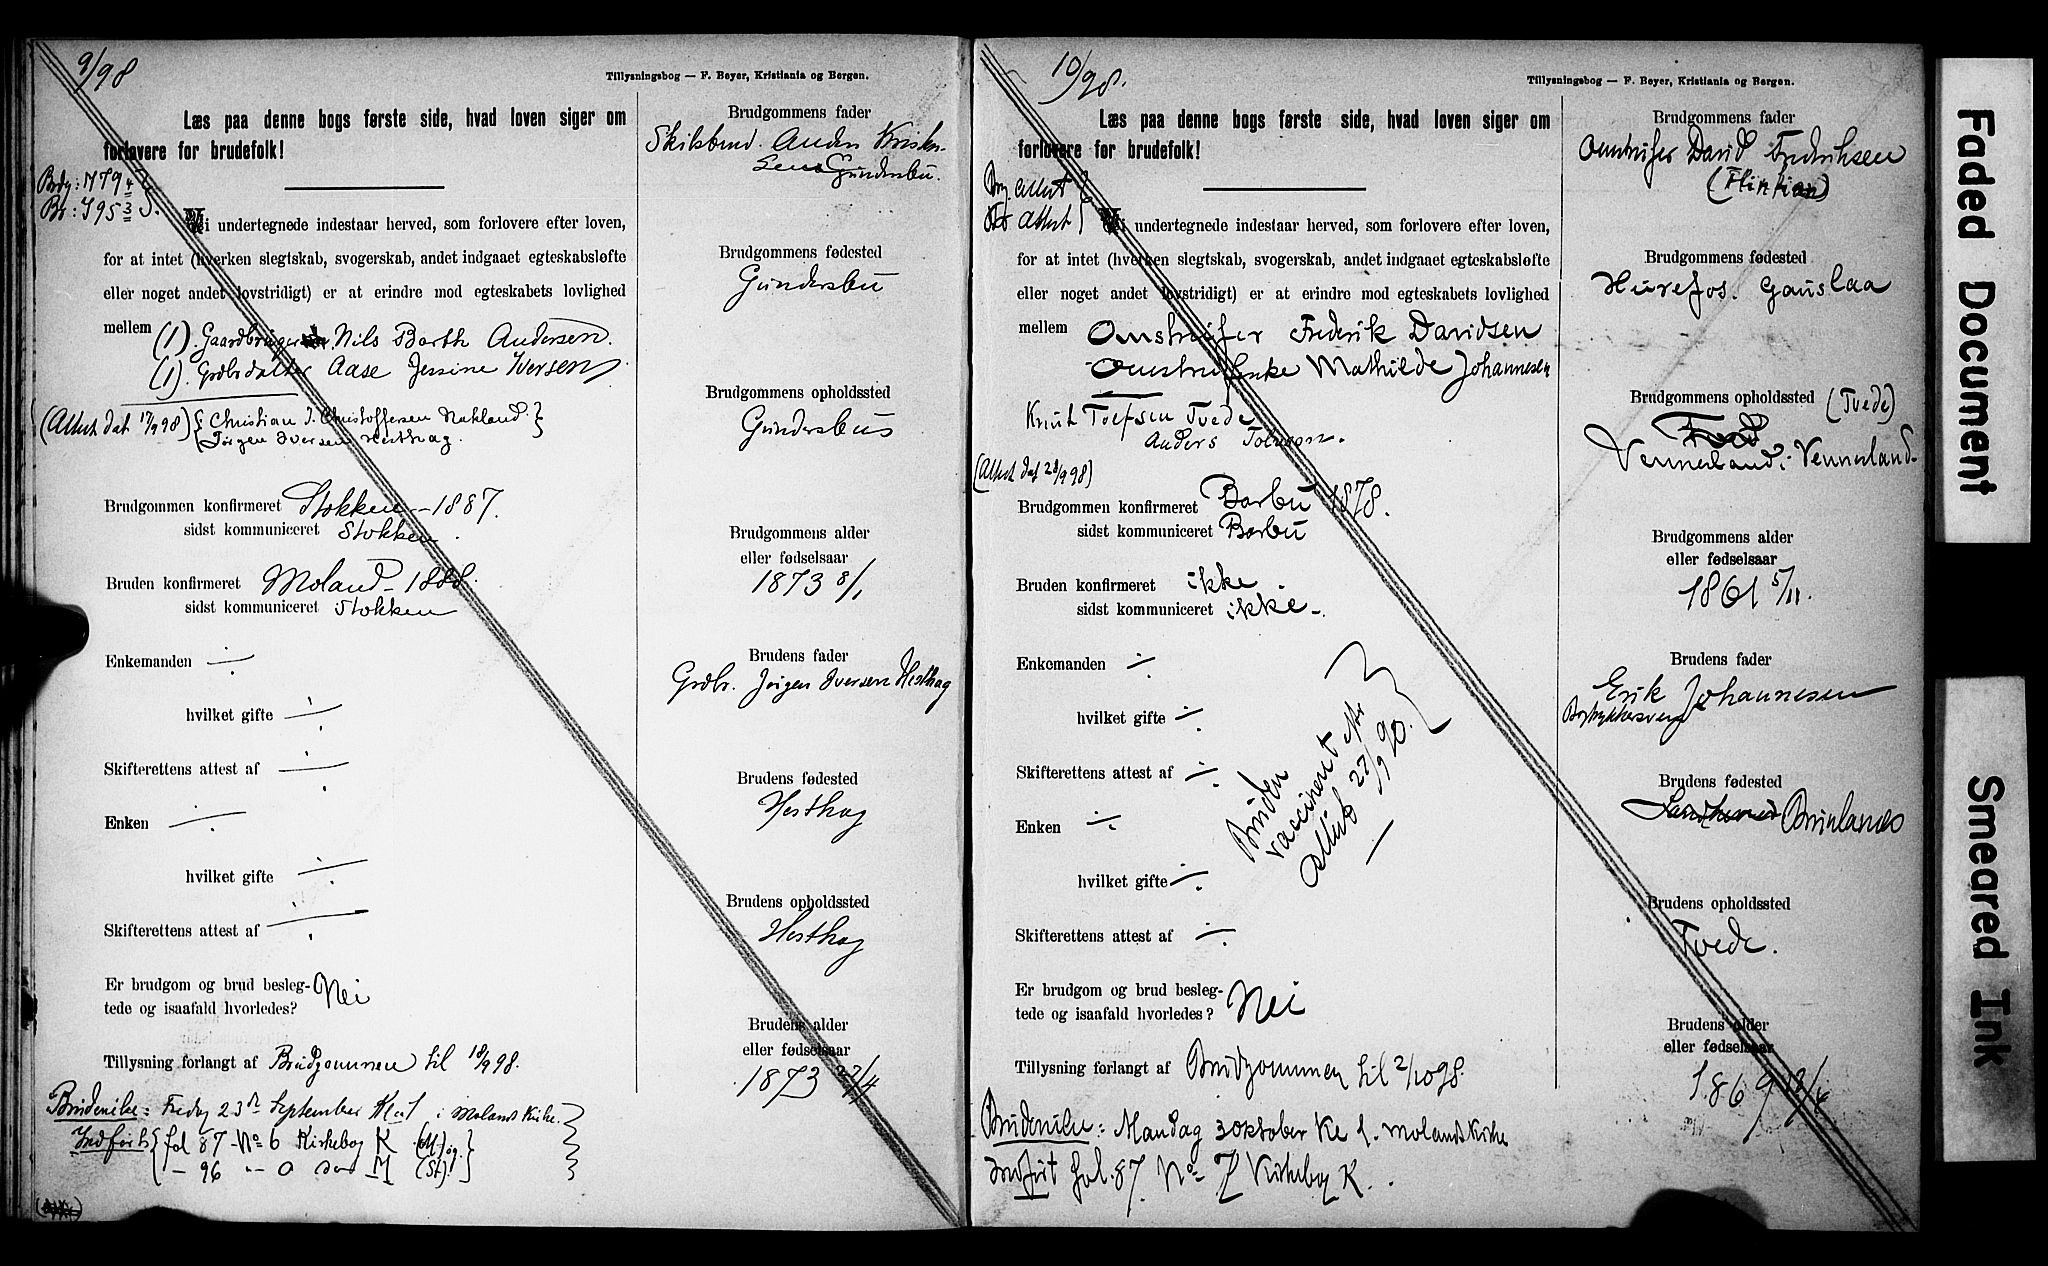 9/98
Tillysningsbog — F. Beyer, Kristiania og Bergen.
Læs paa denne bogs første side, hvad loven siger om
forlovere for brudefolk!
Vi undertegnede indestaar herved, som forlovere efter loven,
for at intet (hverken slegtskab, svogerskab, andet indgaaet egteskabsløfte
eller noget andet lovstridigt) er at erindre mod egteskabets lovlighed
mellem (1). Gaardbruger Nils Barth Andersen.
(1). Grdbrdatter Aase Jessine Iversen
(Attest dat 17/9 98) { Christian J. Christoffersen Nakland }
{ Jørgen Iversen Hesthag.
Brudgommen konfirmeret Stokken - 1887.
sidst kommuniceret Stokken.
Bruden konfirmeret Moland - 1888.
sidst kommuniceret Stokken
Enkemanden ÷
hvilket gifte ÷
Skifterettens attest af ÷
Enken ÷
hvilket gifte ÷
Skifterettens attest af ÷
Er brudgom og brud besleg-
tede og isaafald hvorledes? Nei
Tillysning forlangt af Brudgommen til 18/9 98.
Brudevielse: Fredag 23de September Kl 1 i Molands Kirke.
Indført { fol 87 No 6 Kirkebog K (M) og.
- 96 " 0 do M (St).
Brudgommens fader
Skilsbmd. Anders Kristen-
sen Gundersbu.
Brudgommens fødested
Gundersbu
Brudgommens opholdssted
Gundersbu
Brudgommens alder
eller fødselsaar
1873 8/1
Brudens fader
Grdbr. Jørgen Iversen Hesthag
Brudens fødested
Hesthag
Brudens opholdssted
Hesthag
Brudens alder
eller fødselsaar
1873 27/4
10/98.
Tillysningsbog — F. Beyer, Kristiania og Bergen.
Læs paa denne bogs første side, hvad loven siger om
forlovere for brudefolk!
Brg. attest
Br attest
Vi undertegnede indestaar herved, som forlovere efter loven,
for at intet (hverken slegtskab, svogerskab, andet indgaaet egteskabsløfte
eller noget andet lovstridigt) er at erindre mod egteskabets lovlighed
mellem Omstreifer Frederik Davidsen
Omstreiferske Mathilde Johannesen
Knut Toefsen Tvede
Anders
(Attest dat 28/9 98)
Brudgommen konfirmeret Barbu 1878.
sidst kommuniceret Barbu
Bruden konfirmeret ikke
sidst kommuniceret ikke -.
Enkemanden ÷
hvilket gifte ÷
Skifterettens attest af ÷
Enken ÷
hvilket gifte ÷
Skifterettens attest af ÷
Bruden
vaccineret efter
attest 22/9 90.
Er brudgom og brud besleg-
tede og isaafald hvorledes? Nei
Tillysning forlangt af Brudgommen til 2/10 98.
Brudevielse: Mandag 3 oktober Kl 1. Molands Kirke
Indført fol. 87. No 7 Kirkebog K.
Brudgommens fader
Omstreifer David Fredriksen
(Flintian)
Brudgommens fødested
Hurefos. Gauslaa
Brudgommens opholdssted (Tvede)
Vennerland i Vennerland
Brudgommens alder
eller fødselsaar
1861 5/11.
Brudens fader
Erik Johannesen
Brudens fødested
Brunlanes
Brudens opholdssted
Tvede.
Brudens alder
eller fødselsaar
1869 12/4
Faded Document
Smeared Ink